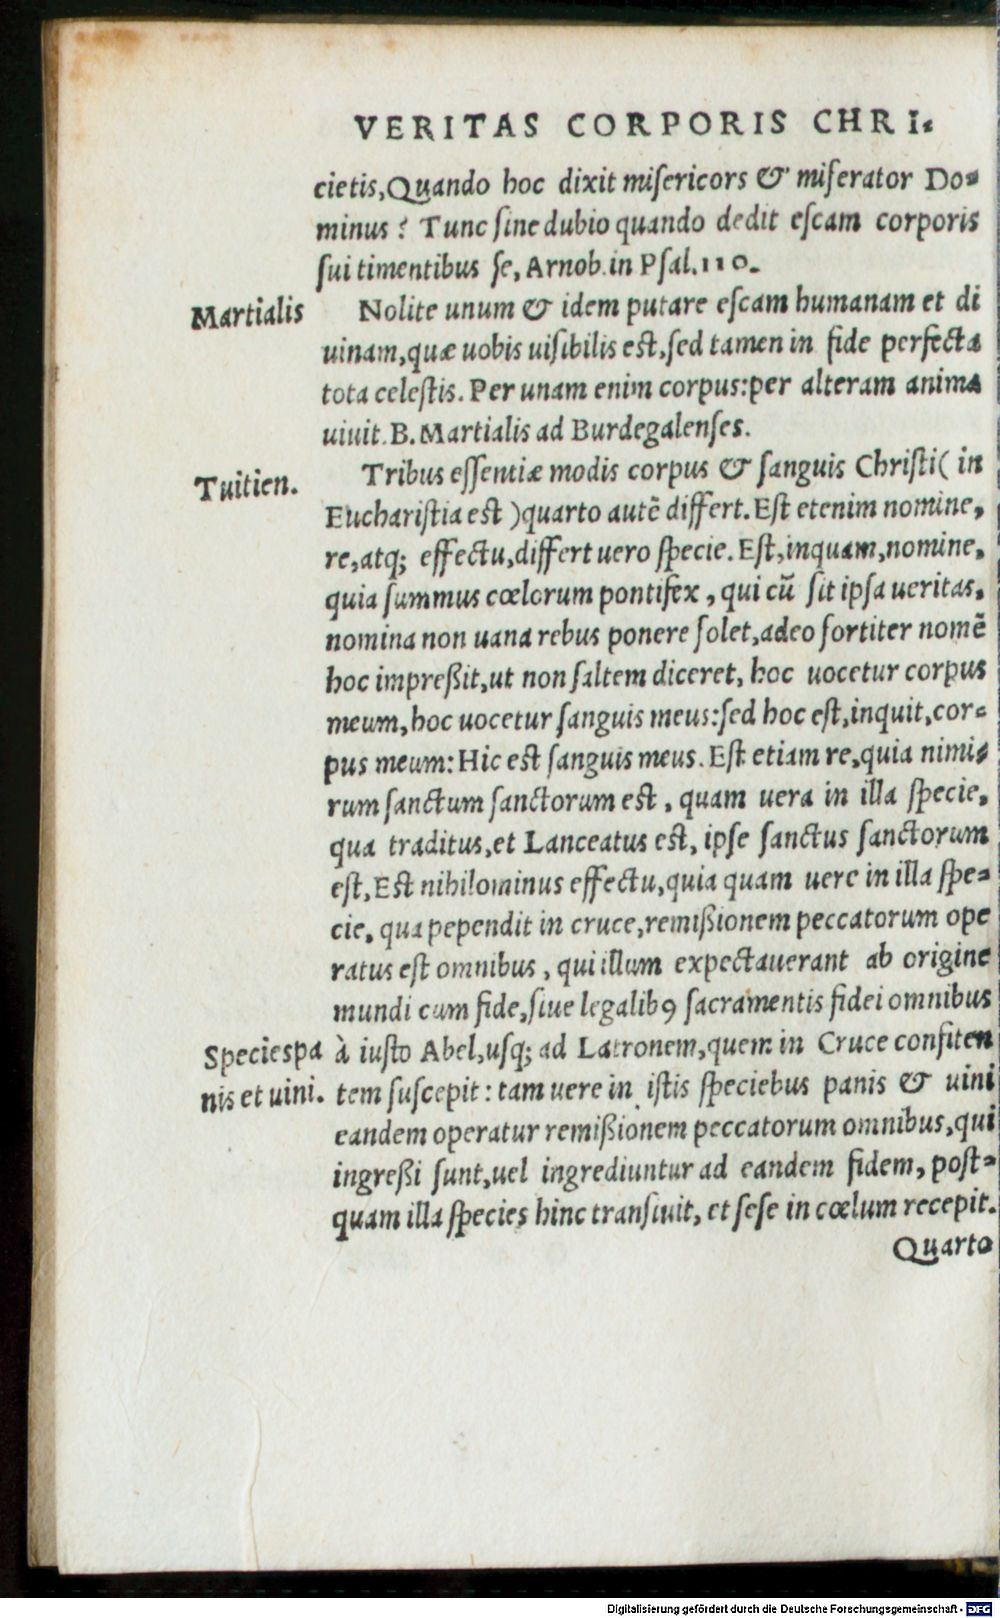 VERITAS CORPORIS CHRI-
cietis, Quando hoc dixit miſericors & miſerator Do-
minus? Tunc ſine dubio quando dedit eſcam corporis
ſui timentibus ſe, Arnob. in Pſal. 110.
Martialis
Nolite unum & idem putare eſcam humanam et di
uinam, quæ uobis uiſibilis eſt, ſed tamen in fide perfecta
tota celeſtis. Per unam enim corpus: per alteram anima
uiuit. B. Martialis ad Burdegalenſes.
Tuitien.
Tribus eſſentiæ modis corpus & ſanguis Chriſti (in
Euchariſtia est) quarto autē differt. Eſt etenim nomine,
re, atq; effectu, differt uero ſpecie. Eſt, inquam, nomine,
quia ſummus cœlorum pontifex, qui cū ſit ipſa ueritas,
nomina non uana rebus ponere ſolet, adeo fortiter nomē
hoc impreßit, ut non ſaltem diceret, hoc uocetur corpus
meum, hoc uocetur ſanguis meus: ſed hoc eſt, inquit, cor-
pus meum: Hic est ſanguis meus. Eſt etiam re, quia nimi-
rum ſanctum ſanctorum est, quam uera in illa ſpecie,
qua traditus, et Lanceatus est, ipſe ſanctus ſanctorum
eſt, Eſt nihilominus effectu, quia quam uere in illa ſpe-
cie, qua pependit in cruce, remißionem peccatorum ope
ratus eſt omnibus, qui illum expectauerant ab origine
mundi cum fide, ſiue legalibꝰ ſacramentis fidei omnibus
Species pa
nis et uini.
à iuſto Abel, uſq; ad Latronem, quem in Cruce confiten
tem ſuſcepit: tam uere in iſtis ſpeciebus panis & uini
eandem operatur remißionem peccatorum omnibus, qui
ingreßi ſunt, uel ingrediuntur ad eandem fidem, post-
quam illa ſpecies hinc tranſiuit, et ſeſe in cœlum recepit.
Quarto
Digitalisierung gefördert durch die Deutsche Forschungsgemeinschaft - DFG